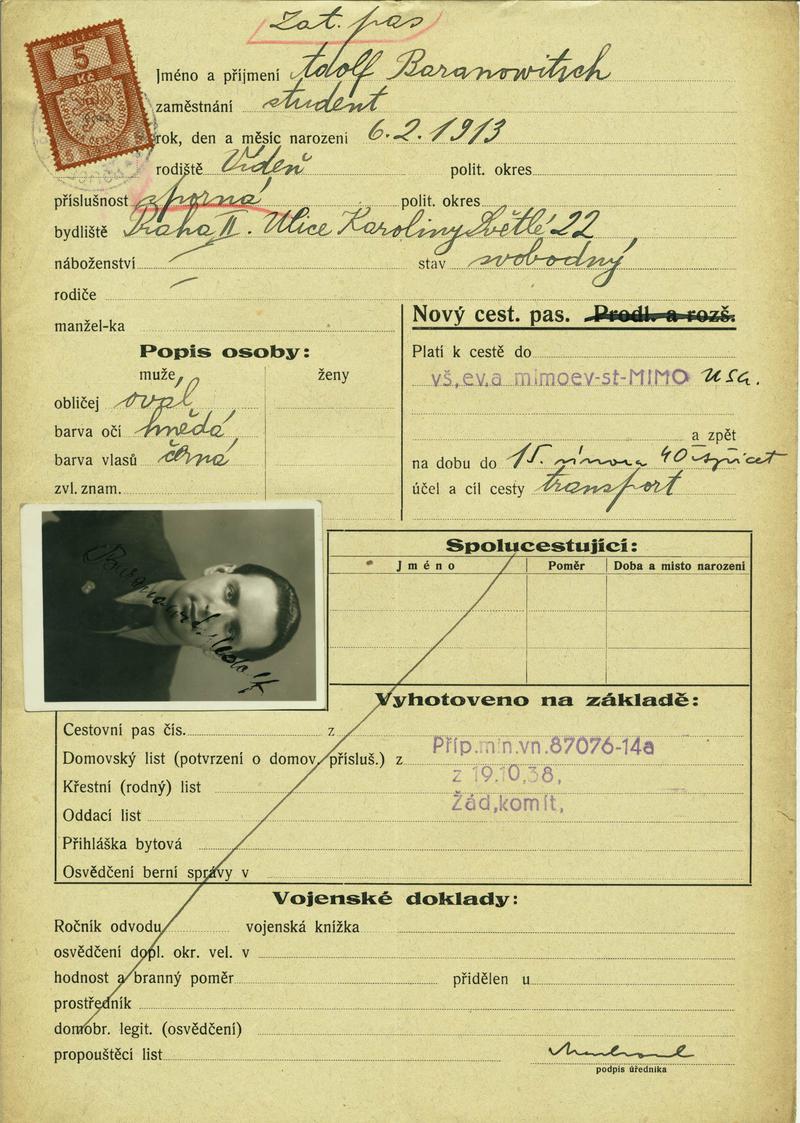 Zat. pas
KOLEK
5
Kč
Jméno a příjmení Adolf Baranowitsch
zaměstnání student
rok, den a měsíc narozeni 6.2.1913
rodiště Vídeň polit. okres
příslušnost sporná polit. okres
bydliště Praha II. Ulice Karoliny Světlé 22
náboženství — stav svobodný
rodiče —
manžel-ka
Nový cest. pas. Prodl. a rozš.
Popis osoby:
muže, ženy
obličej oval
barva očí hnědá
barva vlasů černá
zvl. znam.
Platí k cestě do
vš,ev,a mimoev-st-MIMO USA.
a zpět
na dobu do 15. února 40
účel a cíl cesty transport
Spolucestující:
Jméno Poměr Doba a misto narozeni
Vyhotoveno na základě:
Cestovní pas čís. z
Domovský list (potvrzení o domov. přísluš.) z
Příp.min.vn.87076-14a
z 19.10,38,
Žád,komit,
Křestní (rodný) list
Oddací list
Přihláška bytová
Osvědčení berní správy v
Vojenské doklady:
Ročník odvodu vojenská knížka
osvědčení dopl. okr. vel. v
hodnost a branný poměr přidělen u
prostředník
domobr. legit. (osvědčení)
propouštěcí list
podpis úředníka